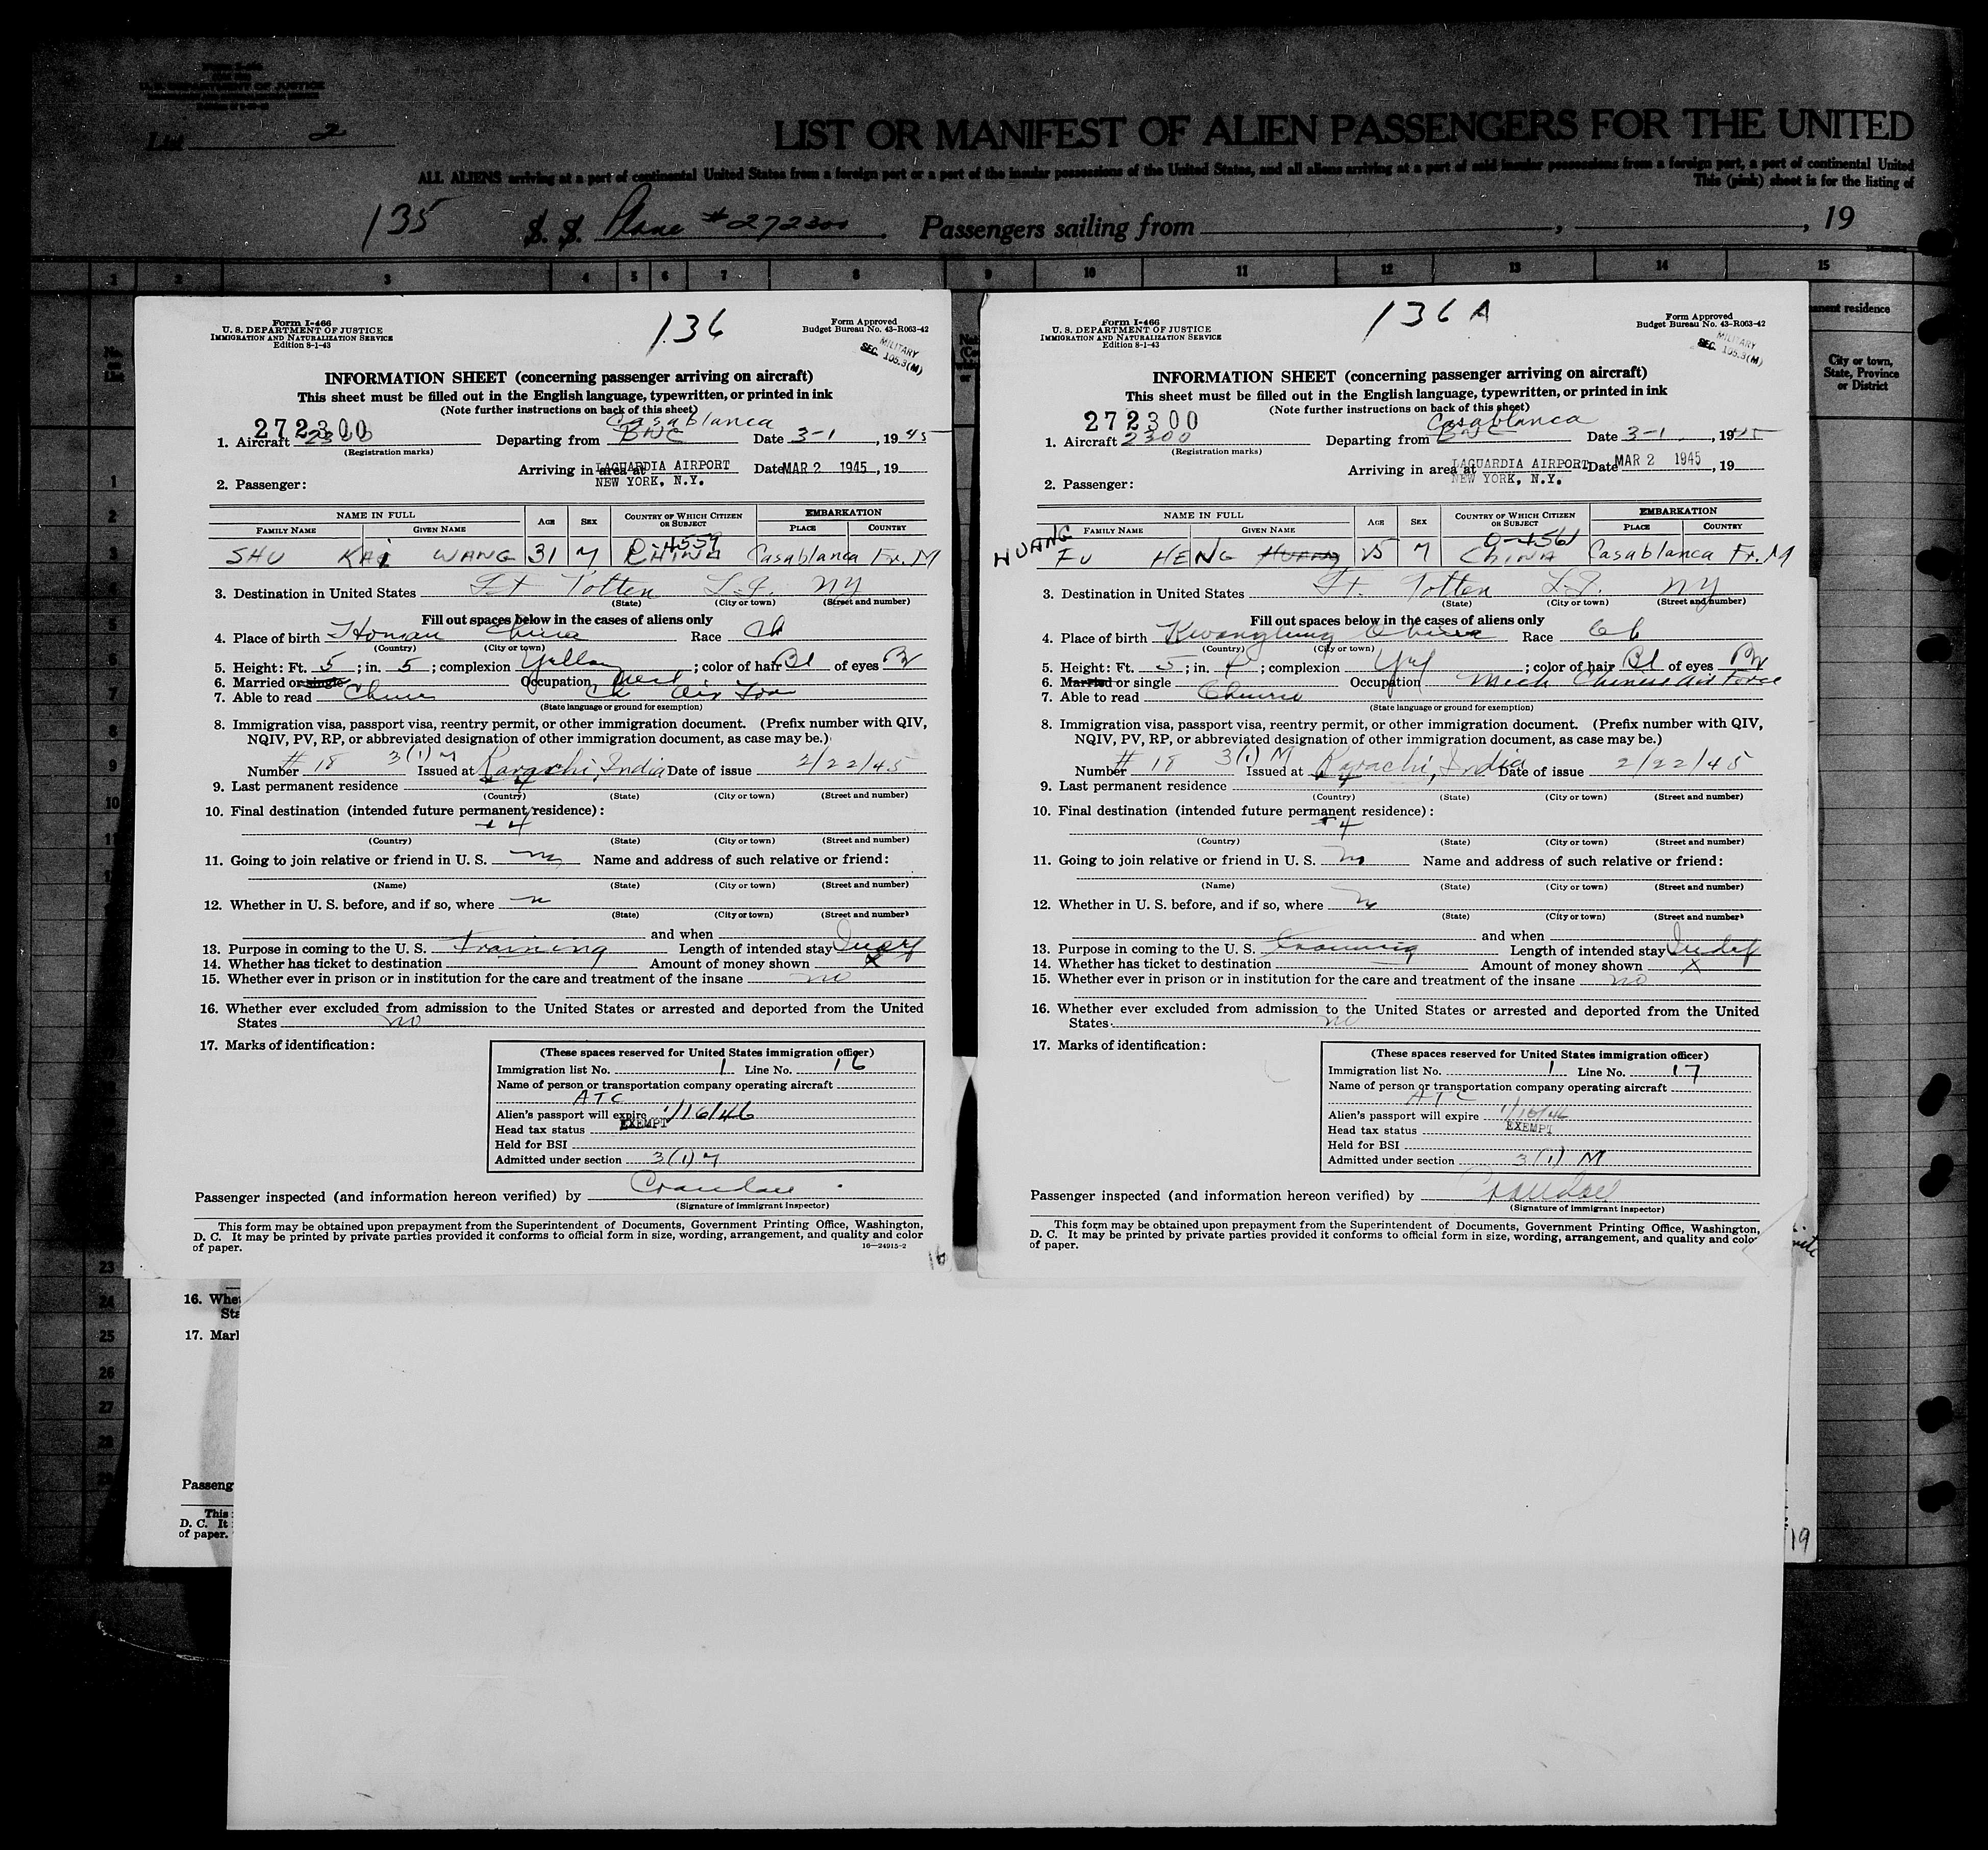 U. S. DEPARTMENT OF JUSTICE
List 2
LIST OR MANIFEST OF ALIEN PASSENGERS FOR THE UNITED
ALL ALIENS arriving at a port of continental United States from a foreign port or a port of the insular possessions of the United States, and all aliens arriving at a port of said insular possessions from a foreign port, a port of continental United
This (pink) sheet is for the listing of
135 S. S. Plane # 272300 Passengers sailing from , , 19
1 2 3 4 5 6 7 8 9 10 11 12 13 14 15
Form I-466
U. S. DEPARTMENT OF JUSTICE
IMMIGRATION AND NATURALIZATION SERVICE
Edition 8-1-43
136
Form Approved
Budget Bureau No. 43-R063-42
MILITARY
SEC. 105.3(M)
INFORMATION SHEET (concerning passenger arriving on aircraft)
This sheet must be filled out in the English language, typewritten, or printed in ink
(Note further instructions on back of this sheet)
272300 Casablanca
1. Aircraft 2300 Departing from BNC Date 3-1, 1945
(Registration marks)
Arriving in area at LAGUARDIA AIRPORT Date MAR 2 1945, 19
NEW YORK, N.Y.
2. Passenger:
NAME IN FULL AGE SEX COUNTRY OF WHICH CITIZEN OR SUBJECT EMBARKATION
FAMILY NAME GIVEN NAME PLACE COUNTRY
SHU KAI WANG 31 M CHINA Casablanca Fr. M
3. Destination in United States Ft Totten L.I. NY
(State) (City or town) (Street and number)
Fill out spaces below in the cases of aliens only
4. Place of birth Honan China Race Ch
(Country) (City or town)
5. Height: Ft. 5; in. 5; complexion Yellow; color of hair Bl of eyes Br
6. Married or single Occupation Mech
7. Able to read Chin Ch Air For
(State language or ground for exemption)
8. Immigration visa, passport visa, reentry permit, or other immigration document. (Prefix number with QIV,
NQIV, PV, RP, or abbreviated designation of other immigration document, as case may be.)
Number # 18 3(1) M Issued at Karachi, India Date of issue 2/22/45
9. Last permanent residence
(Country) (State) (City or town) (Street and number)
10. Final destination (intended future permanent residence):
(Country) (State) (City or town) (Street and number)
11. Going to join relative or friend in U. S. no Name and address of such relative or friend:
(Name) (State) (City or town) (Street and number)
12. Whether in U. S. before, and if so, where n
(State) (City or town) (Street and number)
and when
13. Purpose in coming to the U. S. training Length of intended stay Indef
14. Whether has ticket to destination Amount of money shown x
15. Whether ever in prison or in institution for the care and treatment of the insane no
16. Whether ever excluded from admission to the United States or arrested and deported from the United
States no
17. Marks of identification:
(These spaces reserved for United States immigration officer)
Immigration list No. 1 Line No. 16
Name of person or transportation company operating aircraft
ATC
Alien's passport will expire 1/16/46
Head tax status EXEMPT
Held for BSI
Admitted under section 3(1) M
Passenger inspected (and information hereon verified) by
(Signature of immigrant inspector)
This form may be obtained upon prepayment from the Superintendent of Documents, Government Printing Office, Washington,
D. C. It may be printed by private parties provided it conforms to official form in size, wording, arrangement, and quality and color
of paper. 16—24915-2
16
Form I-466
U. S. DEPARTMENT OF JUSTICE
IMMIGRATION AND NATURALIZATION SERVICE
Edition 8-1-43
136 A
Form Approved
Budget Bureau No. 43-R063-42
MILITARY
SEC. 105.3(M)
INFORMATION SHEET (concerning passenger arriving on aircraft)
This sheet must be filled out in the English language, typewritten, or printed in ink
(Note further instructions on back of this sheet)
272300 Casablanca
1. Aircraft 2300 Departing from BNC Date 3-1, 1945
(Registration marks)
Arriving in area at LAGUARDIA AIRPORT Date MAR 2 1945, 19
NEW YORK, N.Y.
2. Passenger:
NAME IN FULL AGE SEX COUNTRY OF WHICH CITIZEN OR SUBJECT EMBARKATION
FAMILY NAME GIVEN NAME PLACE COUNTRY
HUANG FU HENG HUANG 25 M CHINA Casablanca Fr. M
3. Destination in United States Ft. Totten L.I. NY
(State) (City or town) (Street and number)
Fill out spaces below in the cases of aliens only
4. Place of birth Kwangtung China Race Ch
(Country) (City or town)
5. Height: Ft. 5; in. 4; complexion Yel; color of hair Bl of eyes Br
6. Married or single Occupation Mech Chinese Air Force
7. Able to read Chinese
(State language or ground for exemption)
8. Immigration visa, passport visa, reentry permit, or other immigration document. (Prefix number with QIV,
NQIV, PV, RP, or abbreviated designation of other immigration document, as case may be.)
Number # 18 3(1) M Issued at Karachi, India Date of issue 2/22/45
9. Last permanent residence
(Country) (State) (City or town) (Street and number)
10. Final destination (intended future permanent residence):
(Country) (State) (City or town) (Street and number)
11. Going to join relative or friend in U. S. no Name and address of such relative or friend:
(Name) (State) (City or town) (Street and number)
12. Whether in U. S. before, and if so, where no
(State) (City or town) (Street and number)
and when
13. Purpose in coming to the U. S. training Length of intended stay Indef
14. Whether has ticket to destination Amount of money shown x
15. Whether ever in prison or in institution for the care and treatment of the insane no
16. Whether ever excluded from admission to the United States or arrested and deported from the United
States no
17. Marks of identification:
(These spaces reserved for United States immigration officer)
Immigration list No. 1 Line No. 17
Name of person or transportation company operating aircraft
ATC
Alien's passport will expire 1/16/46
Head tax status EXEMPT
Held for BSI
Admitted under section 3(1) M
Passenger inspected (and information hereon verified) by
(Signature of immigrant inspector)
This form may be obtained upon prepayment from the Superintendent of Documents, Government Printing Office, Washington,
D. C. It may be printed by private parties provided it conforms to official form in size, wording, arrangement, and quality and color
of paper.
permanent residence
City or town,
State, Province
or District
16. Whe
Sta
17. Mar
Passeng
This
D. C. It
of paper.
19